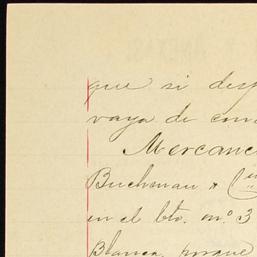 que si desp
vaya de con
Mercanc
Buchman &
en el bto. nº 3
Blanca, porque